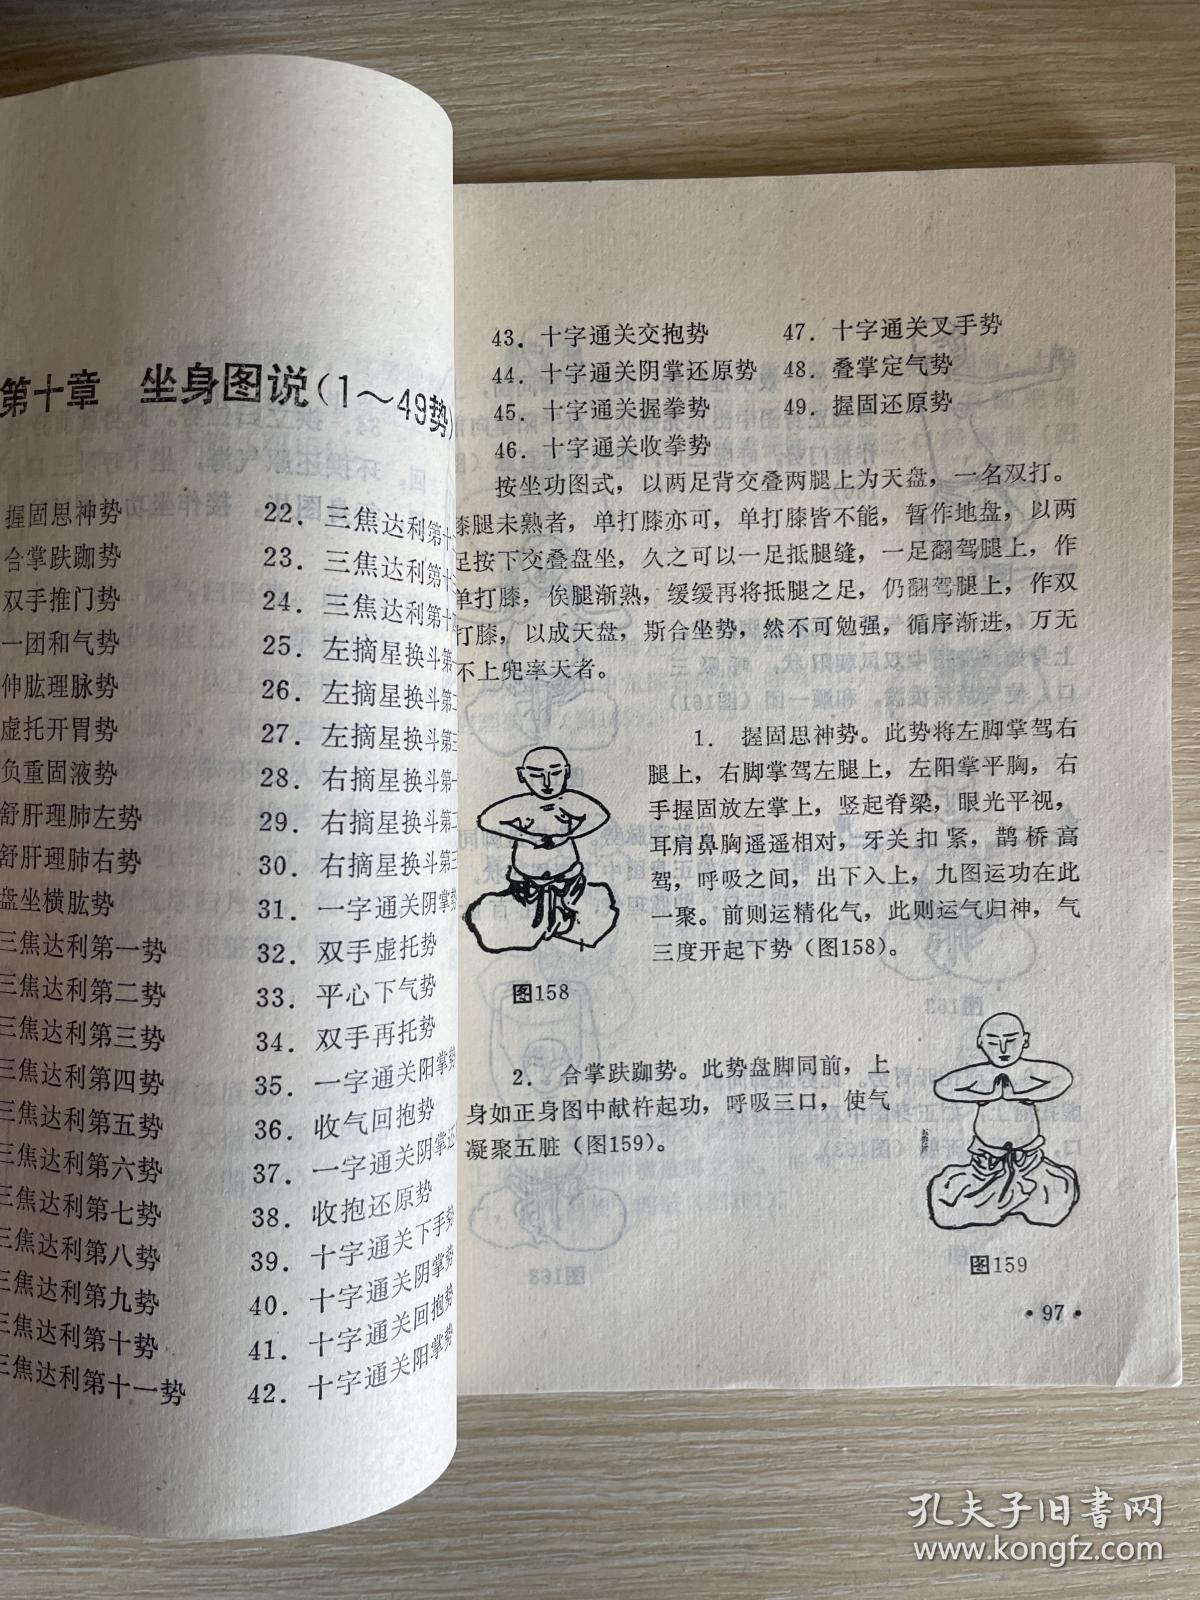 第十章 坐身图说(1～49势)
握固思神势
合掌趺跏势
双手推门势
一团和气势
伸肱理脉势
虚托开胃势
负重固液势
舒肝理肺左势
舒肝理肺右势
盘坐横肱势
三焦达利第一势
三焦达利第二势
三焦达利第三势
三焦达利第四势
三焦达利第五势
三焦达利第六势
三焦达利第七势
三焦达利第八势
三焦达利第九势
三焦达利第十势
三焦达利第十一势
22. 三焦达利第十
23. 三焦达利第十
24. 三焦达利第十
25. 左摘星换斗第一
26. 左摘星换斗第二
27. 左摘星换斗第三
28. 右摘星换斗第一
29. 右摘星换斗第二
30. 右摘星换斗第三
31. 一字通关阴掌势
32. 双手虚托势
33. 平心下气势
34. 双手再托势
35. 一字通关阳掌势
36. 收气回抱势
37. 一字通关阴掌还
38. 收抱还原势
39. 十字通关下手势
40. 十字通关阴掌势
41. 十字通关回抱势
42. 十字通关阳掌势
43. 十字通关交抱势
44. 十字通关阴掌还原势
45. 十字通关握拳势
46. 十字通关收拳势
47. 十字通关叉手势
48. 叠掌定气势
49. 握固还原势
按坐功图式，以两足背交叠两腿上为天盘，一名双打。
膝腿未熟者，单打膝亦可，单打膝皆不能，暂作地盘，以两
足按下交叠盘坐，久之可以一足抵腿缝，一足翻驾腿上，作
单打膝，俟腿渐熟，缓缓再将抵腿之足，仍翻驾腿上，作双
打膝，以成天盘，斯合坐势，然不可勉强，循序渐进，万无
不上兜率天者。
1. 握固思神势。此势将左脚掌驾右
腿上，右脚掌驾左腿上，左阳掌平胸，右
手握固放左掌上，竖起脊梁，眼光平视，
耳肩鼻胸遥遥相对，牙关扣紧，鹊桥高
驾，呼吸之间，出下入上，九图运功在此
一聚。前则运精化气，此则运气归神，气
三度开起下势（图158）。
图158
2. 合掌趺跏势。此势盘脚同前，上
身如正身图中献杵起功，呼吸三口，使气
凝聚五脏（图159）。
图159
·97·
孔夫子旧书网
www.kongfz.com